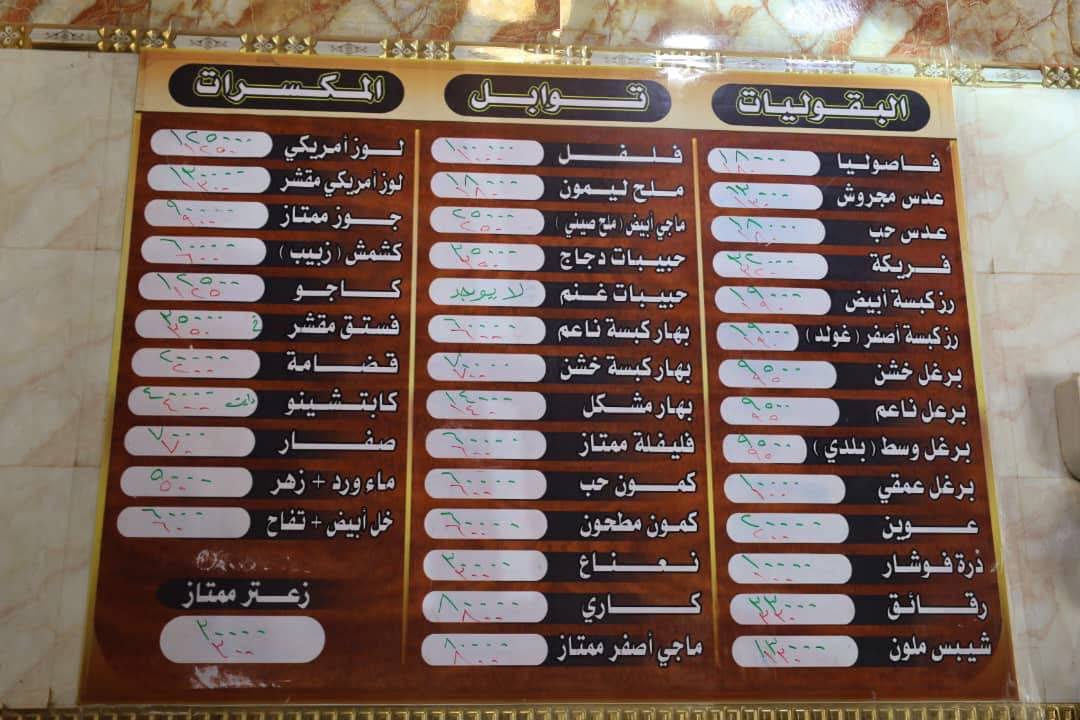 البقوليات
فاصوليا ١٨٠٠٠
١٨٠
عدس مجروش ١٣٠٠٠
١٣٠
عدس حب ١٨٠٠٠
فريكة ٣٢٠٠٠
٣٢٠
رز كبسة أبيض ١٩٠٠٠
١٩٠
رز كبسة أصفر (غولد) ١٩٠٠٠
١٩٠
برغل خشن ٩٥٠٠
٩٥
برعل ناعم ٩٥٠٠
٩٥
برغل وسط (بلدي) ٩٥٠٠
٩٥
برغل عمقي ١٠٠٠٠
١٠٠
عوين ٢٠٠٠٠
٢٠٠
ذرة فوشار ١٠٠٠٠
١٠٠
رقائق ٣٣٠٠٠
٣٣٠
شيبس ملون ١٣٠٠٠
١٣٠
توابل
فلفل ١٠٠٠٠٠
١٠٠٠
ملح ليمون ١٨٠٠٠
١٨٠
ماجي أبيض (ملح صيني) ٢٥٠٠٠
٢٥٠
حبيبات دجاج ٣٥٠٠٠
٣٥٠
حبيبات غنم لا يوجد
بهار كبسة ناعم ٦٠٠٠٠
٦٠٠
بهار كبسة خشن ٧٠٠٠٠
٧٠٠
بهار مشكل
فليفلة ممتاز ٦٠٠٠٠
٦٠٠
كمون حب ٦٠٠٠٠
٦٠٠
كمون مطحون ٦٠٠٠٠
٦٠٠
نعناع ٣٠٠٠٠
٣٠٠
كاري ٨٠٠٠٠
٨٠٠
ماجي أصفر ممتاز ٨٠٠٠٠
٨٠٠
المكسرات
لوز أمريكي ١٢٥٠٠٠
١٢٥٠
لوز أمريكي مقشر ١٣٠٠٠٠
١٣٠٠
جوز ممتاز ٩٠٠٠٠
٩٠٠
كشمش (زبيب) ٦٠٠٠٠
٦٠٠
كاجو ١٢٥٠٠٠
١٢٥٠
فستق مقشر ٣٥٠٠٠
٣٥٠
قضامة ٢٠٠٠٠
٢٠٠
كابتشينو ٤٠٠٠٠
٤٠٠
صفار ٧٠٠٠
٧٠
ماء ورد + زهر ٥٠٠٠
٥٠
خل أبيض + تفاح ٦٠٠٠
٦٠
زعتر ممتاز
٣٠٠٠٠
٣٠٠